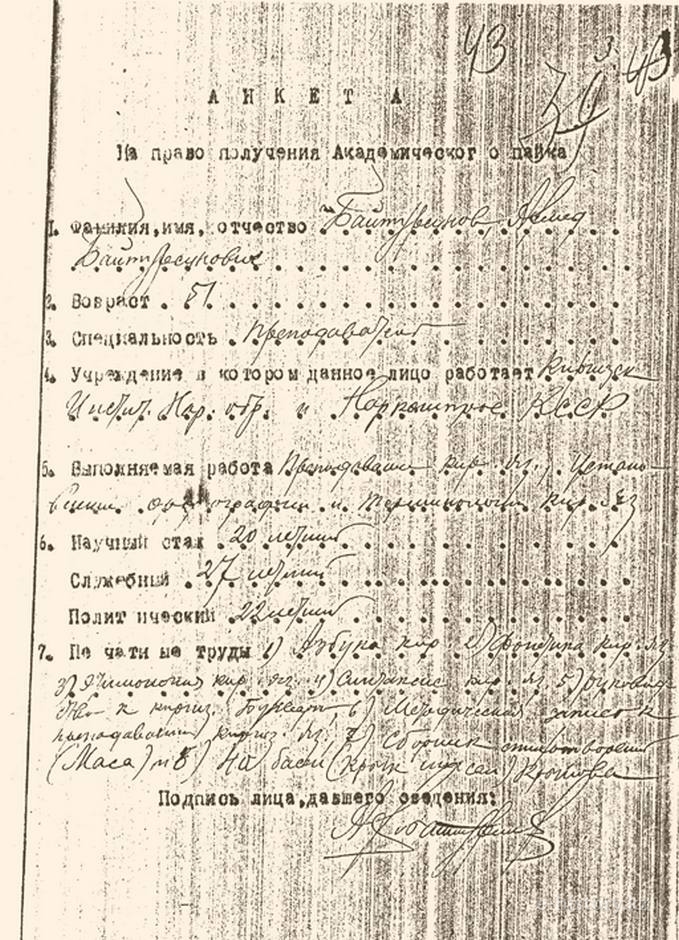 43
3.
43
АНКЕТА
На право получения Академическог о пайка
1. Фамилия, имя, отчество Байтурсунов, Ахмед
Байтурсунович
2. Возраст 51
3. Специальность Преподаватель
4. Учреждение в котором данное лицо работает Киргизск
Инстит. Нар. обр. и Наркомпрос КССР
5. Выполняемая работа Преподавание кир. яз., Устано-
вление орфографии и терминологии кир. яз
6. Научный стаж 20 летний
Служебный 27 летний
Полит ический 22 летний
7. Пе чати ые труды 1) Азбука кир 2) Фонетика кир. яз
3) Этимология кир. яз. 4) Синтаксис кир. яз 5)
к киргиз. Букварю 6) Методическая записк
преподавании киргиз. яз. 7) Сборник стихотворений
(Маса) 8) 40 басен Крылова
Подпись лица, давшего сведения: